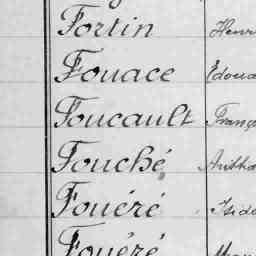 Fortin Henri
Fouace Édoua
Foucault Franç
Fouché
Fouéré Isido
Fouéré